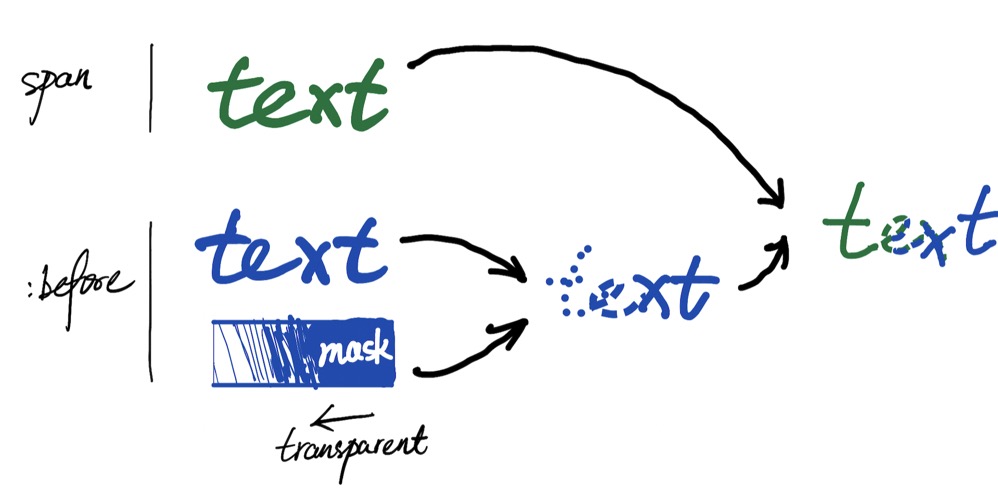 span
text
:before
text
mask
transparent
text
text